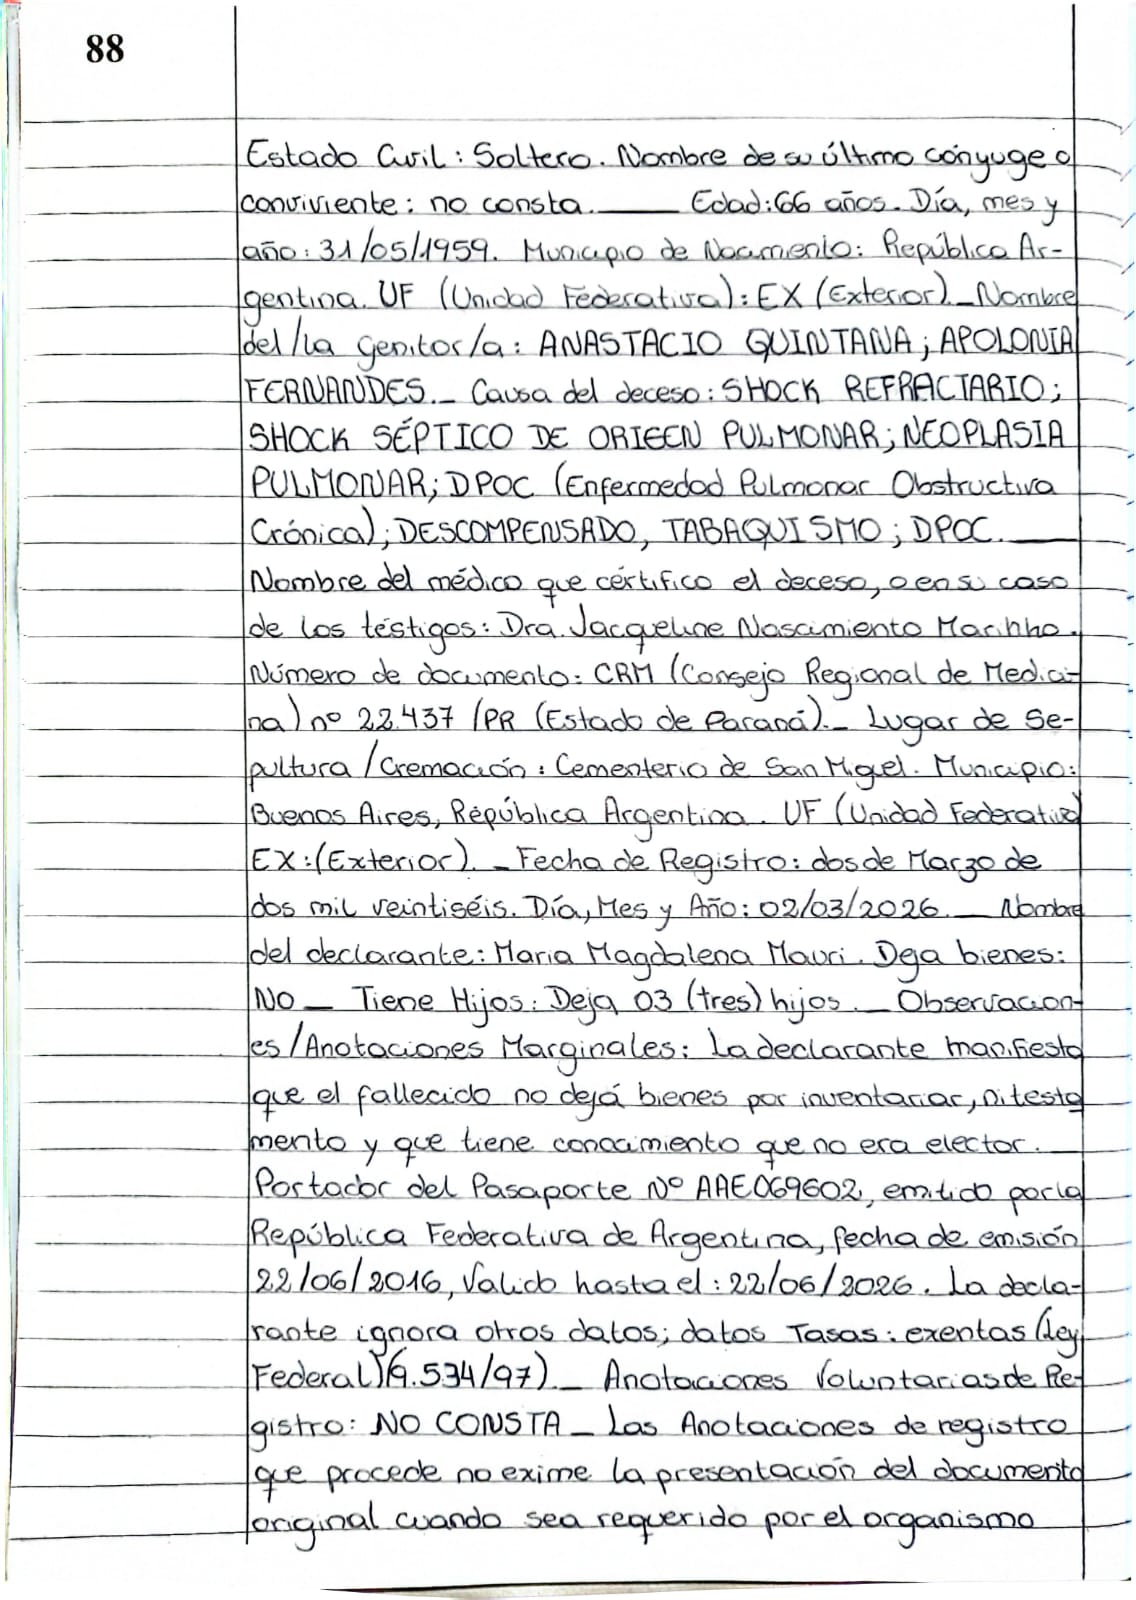 88
Estado Civil: Soltero. Nombre de su último cónyuge o
conviviente: no consta. ____ Edad: 66 años. Día, mes y
año: 31/05/1959. Municipio de Nacimiento: República Ar-
gentina. UF (Unidad Federativa): EX (Exterior)._ Nombre
del/la genitor/a: ANASTACIO QUINTANA; APOLONIA
FERNANDES._ Causa del deceso: SHOCK REFRACTARIO;
SHOCK SÉPTICO DE ORIGEN PULMONAR; NEOPLASIA
PULMONAR; DPOC (Enfermedad Pulmonar Obstructiva
Crónica); DESCOMPENSADO, TABAQUISMO; DPOC.____
Nombre del médico que cértifico el deceso, o en su caso
de los téstigos: Dra. Jacqueline Nascimiento Marinho.
Número de documento: CRM (Consejo Regional de Medici-
na) nº 22.437 /PR (Estado de Paraná)._ Lugar de Se-
pultura /Cremación: Cementerio de San Miguel. Municipio:
Buenos Aires, República Argentina. UF (Unidad Federativa)
EX:(Exterior). _ Fecha de Registro: dos de Marzo de
dos mil veintiséis. Día, Mes y Año: 02/03/2026. __ Nombre
del declarante: Maria Magdalena Mauri. Deja bienes:
NO _ Tiene Hijos: Deja 03 (tres) hijos. _ Observacion-
es/Anotaciones Marginales: La declarante manifiesta
que el fallecido no dejá bienes por inventariar, ni testa
mento y que tiene conocimiento que no era elector.
Portador del Pasaporte Nº AAE069602, emitido por la
República Federativa de Argentina, fecha de emisión
22/06/2016, Valido hasta el: 22/06/2026. La decla-
rante ignora otros datos; datos Tasas: exentas (Ley
Federal)(9.534/97)._ Anotaciones Voluntarias de Re-
gistro: NO CONSTA _ Las Anotaciones de registro
que procede no exime la presentación del documento
original cuando sea requerido por el organismo